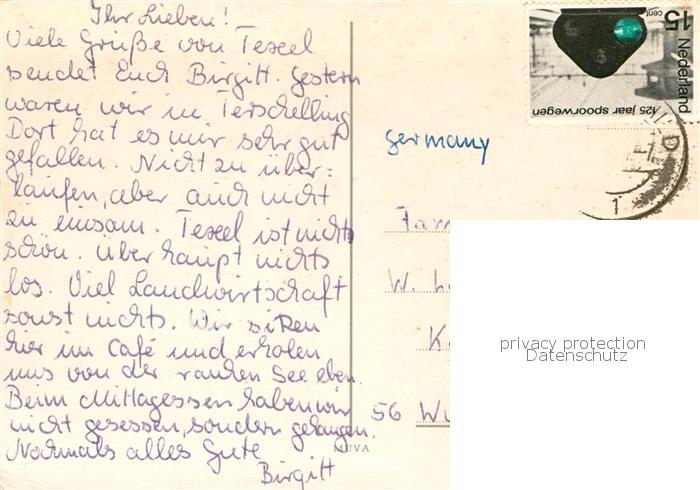 Ihr Lieben!
Viele Grüße von Texel
sendet Euch Birgitt. Gestern
waren wir in Terschelling
Dort hat es mir sehr gut
gefallen. Nicht zu über=
laufen, aber auch nicht
zu einsam. Texel ist nichts
schön. Überhaupt nichts
los. Viel Landwirtschaft
sonst nichts. Wir sitzen
hier im Café und erholen
uns von der rauhen See eben.
Beim Mittagessen haben wir
nicht gesessen, sondern gehangen.
Nochmals alles Gute
Birgitt
MUVA
15 cent
Nederland
125 jaar spoorwegen
Germany
Fam
W.
K
56 Wu
privacy protection
Datenschutz